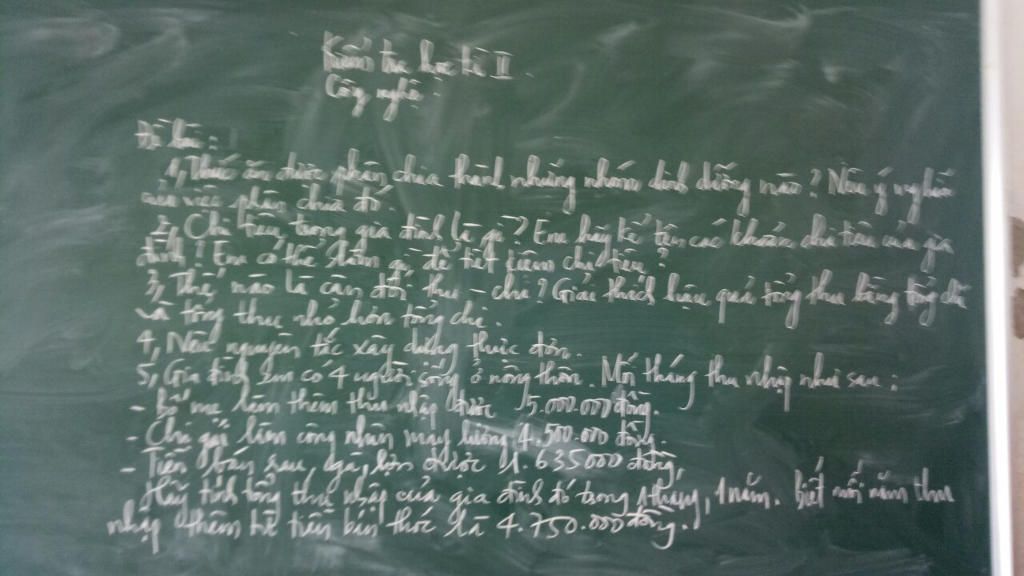 Kiểm tra học kì II.
Công nghệ.
Đề bài:
1, Thức ăn được phân chia thành những nhóm dinh dưỡng nào? Nêu ý nghĩa
của việc phân chia đó.
2, Chi tiêu trong gia đình là gì? Em hãy kể tên các khoản chi tiêu của gia
đình! Em có thể làm gì để tiết kiệm chi tiêu?
3, Thế nào là cân đối thu - chi? Giải thích hậu quả tổng thu bằng tổng chi
và tổng thu nhỏ hơn tổng chi.
4, Nêu nguyên tắc xây dựng thực đơn.
5, Gia đình em có 4 người sống ở nông thôn. Mỗi tháng thu nhập như sau:
- Bố mẹ làm thêm thu nhập được 5.000.000 đồng.
- Chị gái làm công nhân may lương 4.500.000 đồng.
- Tiền bán rau, gà, lợn được 1.635000 đồng,
Hãy tính tổng thu nhập của gia đình đó trong 1 tháng, 1 năm. Biết mỗi năm thu
nhập thêm từ tiền bán thóc là 4.750.000 đồng.